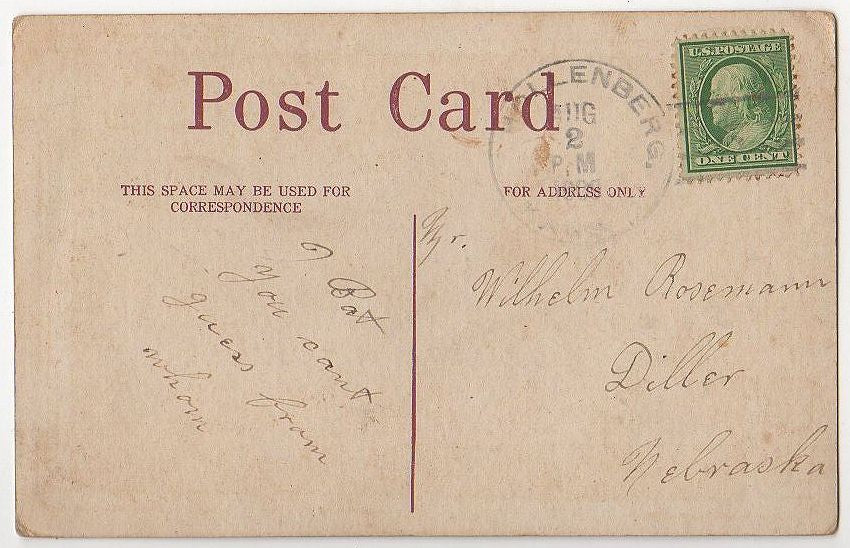 Post Card
U.S. POSTAGE
ONE CENT
HOLLENBERG,
AUG
2
P M
KANS.
THIS SPACE MAY BE USED FOR
CORRESPONDENCE
FOR ADDRESS ONLY
I Bat
you cant
guess fram
whom
Mr.
Wilhelm Rosemann
Diller
Nebraska